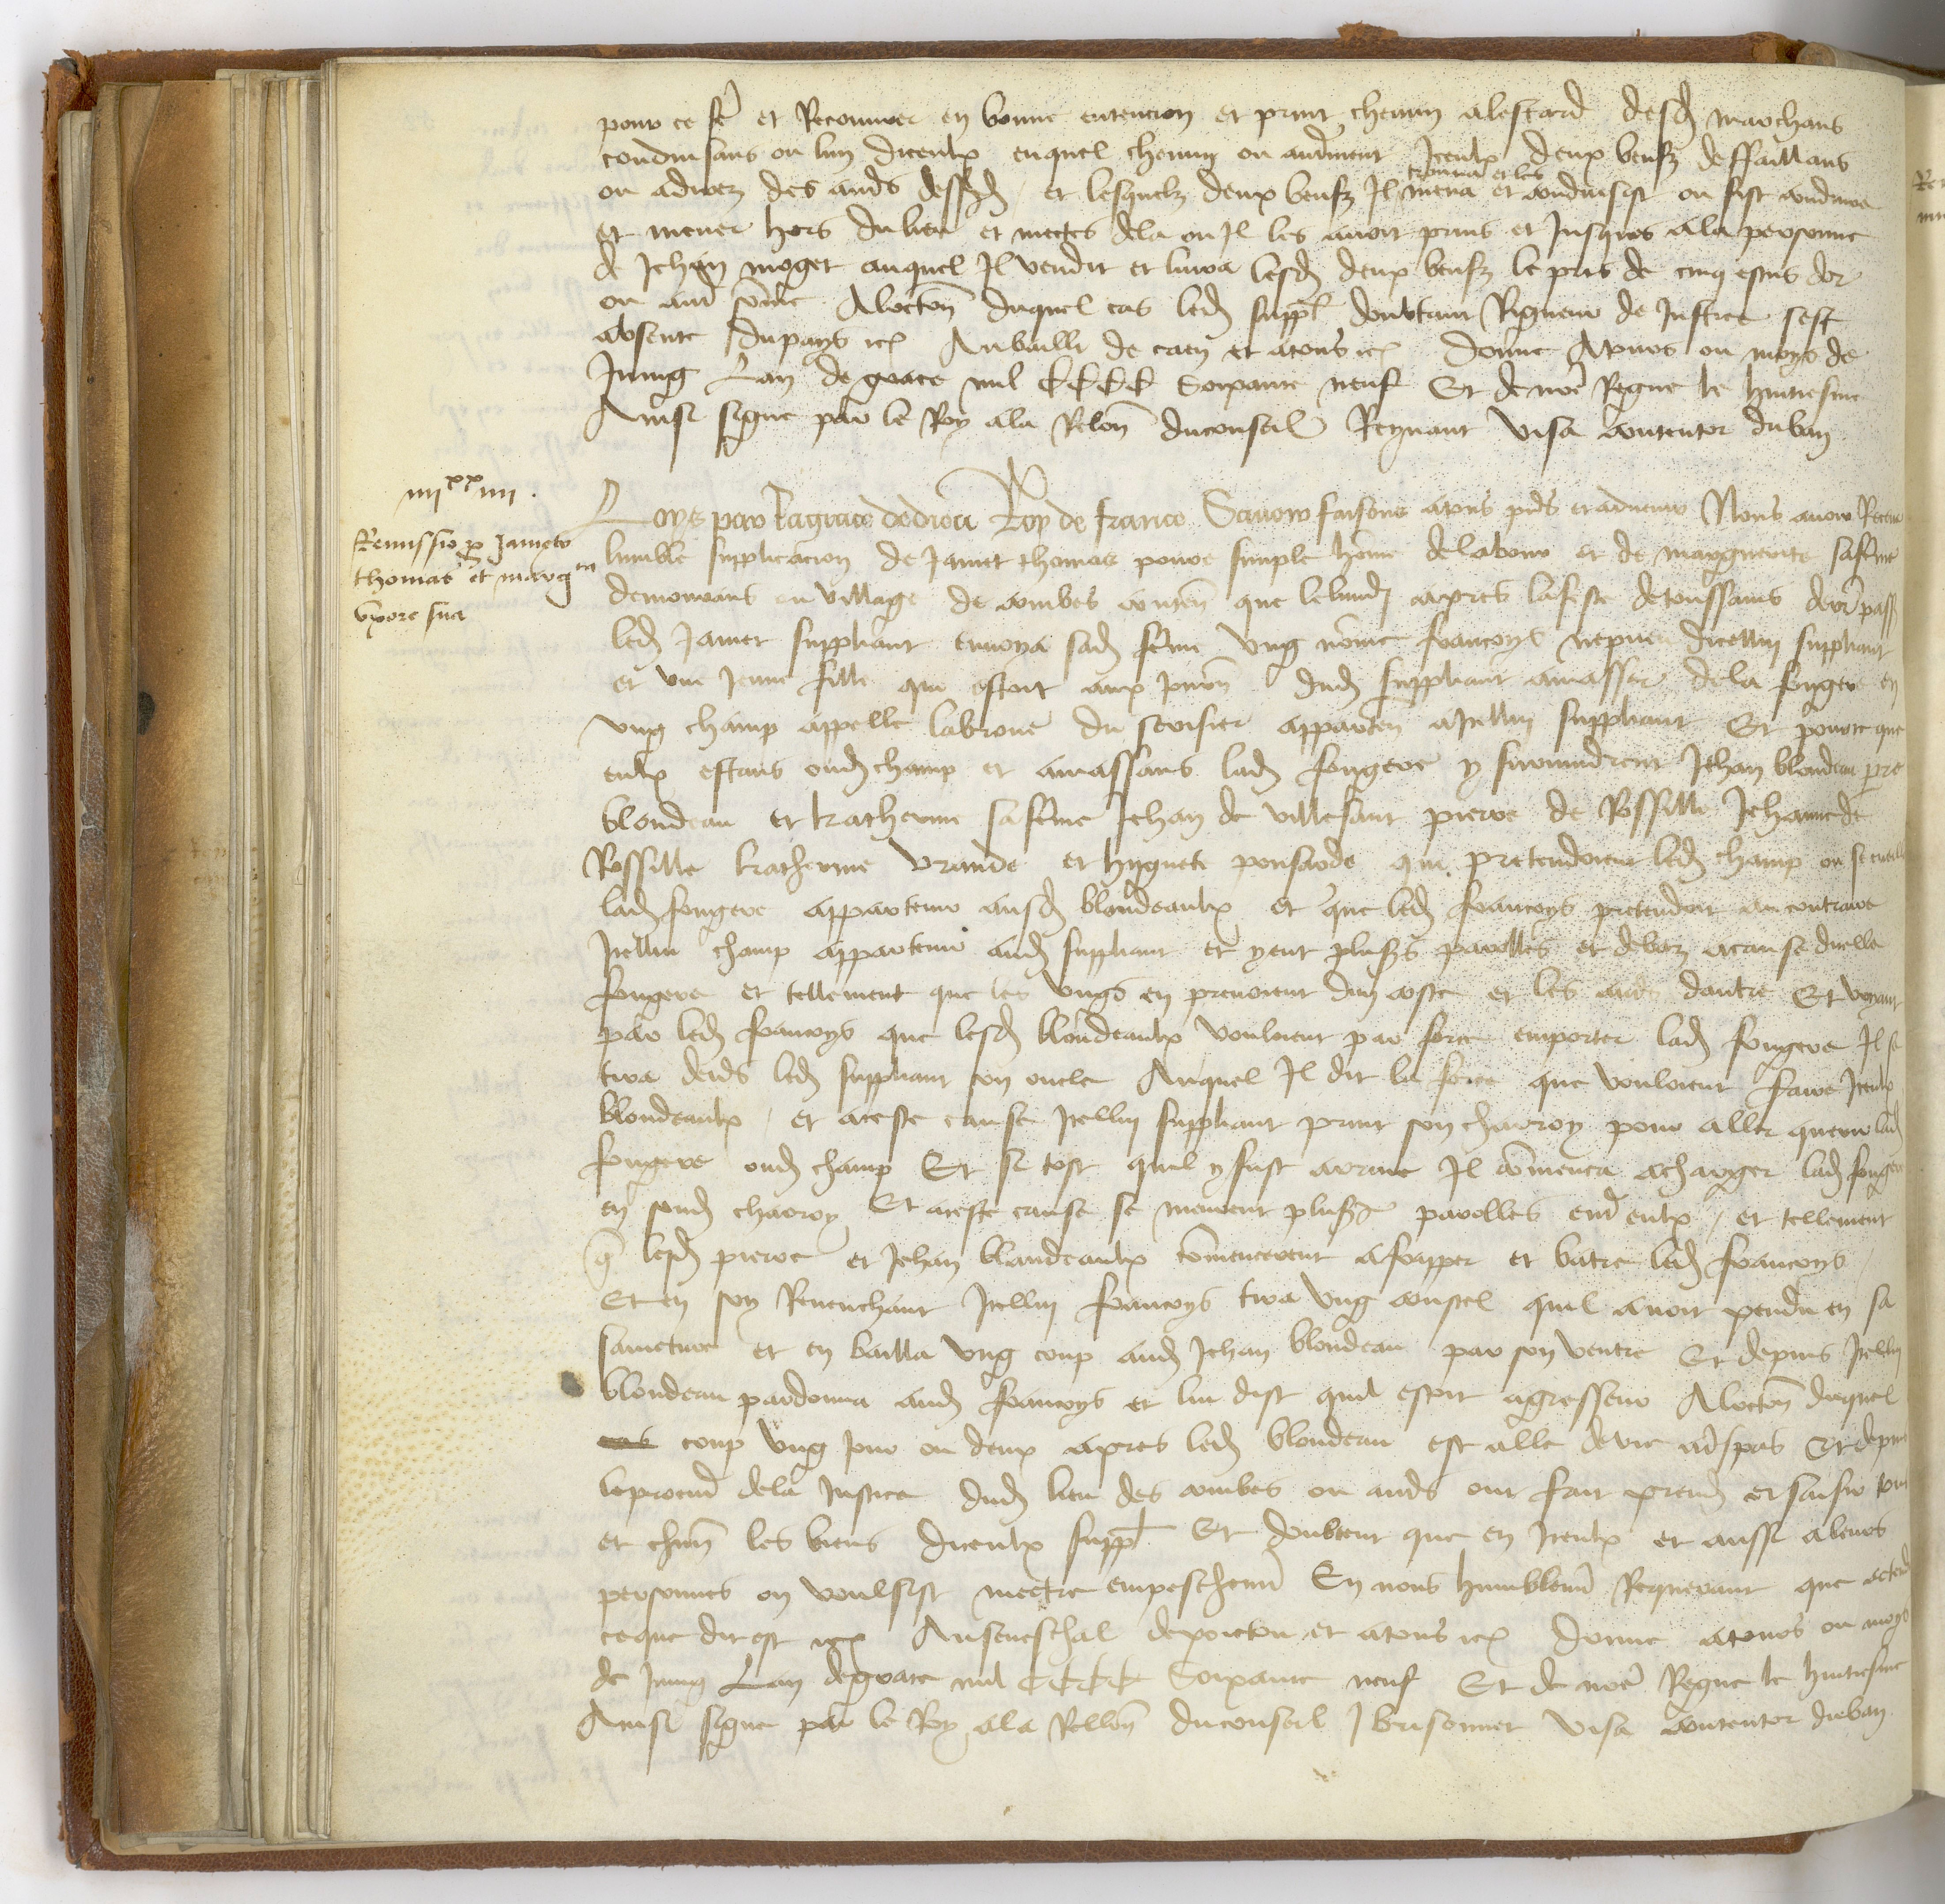 pour ce fe et Retourner en bonne entencion et print chemin alescard desd marchans
conduisans ou lun diceulx ouquel chemin ou autrement Iceulx deux beufz deffaillans
trouva et les
ou aduerz des auds dessd et lesquelz deux beufz Il mena et conduisist ou fist conduire
et mener hors du lieu et mectes dela ou Il les auoit prins et Jusques ala personne
de Jehan moget auquel Il vendit et livra lesd deux beufz le pris de cinq escus dor
ou aut somme Aloccon duquel cas led suppl doubtant Rigueur de Justice sest
absente du pays etc Au bailli de caen et atous etc donne Atours ou moys de
Juing Lan de grace mil cccc Soixante neuf Et de nore Regne le huitiesme
Ainsi signe par le Roy ala Relon du conseil Reynaut visa contentor duban
iiiixxiiii.
Remissio p Jameto
thomas et margta
uxore sua
Loys par la grace de dieu Roy de france Sauoir faisons atous pns et aduenir Nous auoir Receu
lumble supplicacion de Jamet thomas poure simple homme de labour et de marguerite sa femme
demourans ou village de combes conten que le lundi apres la feste de toussains derr pass
led Jamet suppliant enuoya sad femme ung nomme francoys nepueu dicellui suppliant
et une Jeune fille qui estoit aux Journ dud suppliant amasser de la fougere en
ung champ appelle labroue du serisier apparten aIcellui suppliant Et pource que
eulx estans oud champ et amassans lad fougere y suruindrent Jehan blondeau pre
blondeau et katherine sa femme Jehan de villesaut pierre de Rossille Jehanne de
Rossille katherine vrande et huguete ponsarde qui pretendoient led champ ou se cueill
lad fougere appartenir ausd blondeaulx et que led francoys pretendoit au contraire
Icellui champ appartenir aud suppliant et y eut plusrs parolles et debaz acause dicelle
fougere et tellement que les ungs en prenoient dun coste et les auds dautre Et voyant
par led francoys que lesd blondeaulx vouloient par force emporter lad fougere Il se
tira deuers led suppliant son oncle Auquel Il dit la force que vouloient faire Iceulx
blondeaulx et aceste cause Icellui suppliant print son charroy pour aller querir lad
fougere oud champ Et si tost quil y fust arriue Il commenca acharger lad fougere
en sond charroy Et aceste cause se meurent plusrs parolles entr eulx et tellement
q lesd pierre et Jehan blandeaulx commencerent afrapper et batre led francoys
Et en soy Reuenchant Icellui francoys tira ung coustel quil auoit pendu en sa
sainture et en bailla ung coup aud Jehan blondeau par son ventre Et depuis Icellui
blondeau pardonna aud francoys et lui dist quil estoit agresseur Aloccon duquel
cas coup ung jour ou deux apres led blondeau est alle de vie a trespas Et depuis
le procur dela Justice dud lieu des combes ou auds ont fait prend et saisir tous
et chun les biens diceulx suppl Et doubtent que en Iceulx et aussi aleurs
personnes on voulsist mectre empeschemt En nous humblemt Requerant que actend
ce que dit est etc Au seneschal de poictou et atous etc donne atours ou moys
de Juing Lan de grace mil cccc Soixante neuf Et de nore Regne le huitiesme
Ainsi signe par le Roy ala Rellon du conseil J brisonnet visa contentor duban